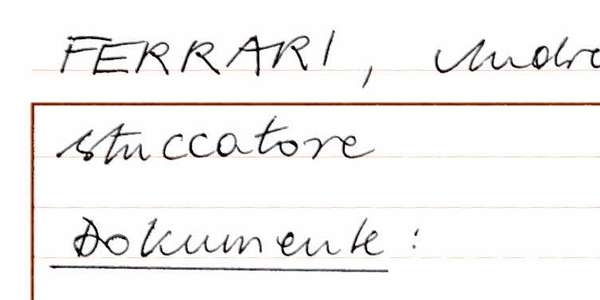 FERRARI, Andre
stuccatore
Dokumente: